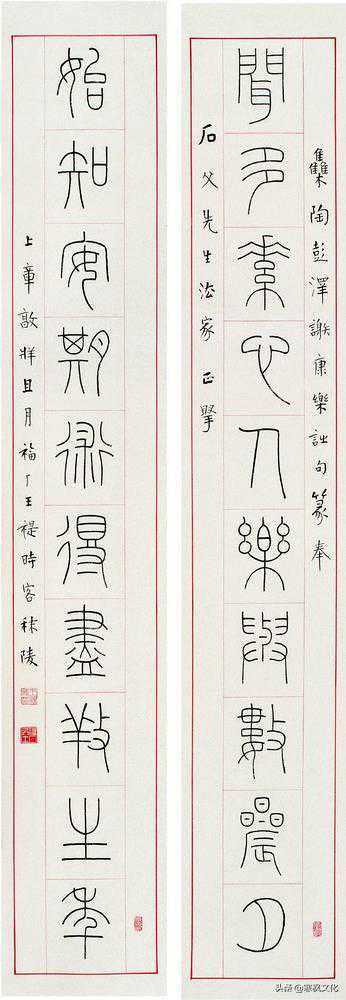 雧陶彭澤謝康樂詩句篆奉
聞多素心人樂與數晨夕
石父先生法家正掔
始知安期術得盡養生年
上章敦牂且月福厂王禔時客秣陵
头条@寒枫文化